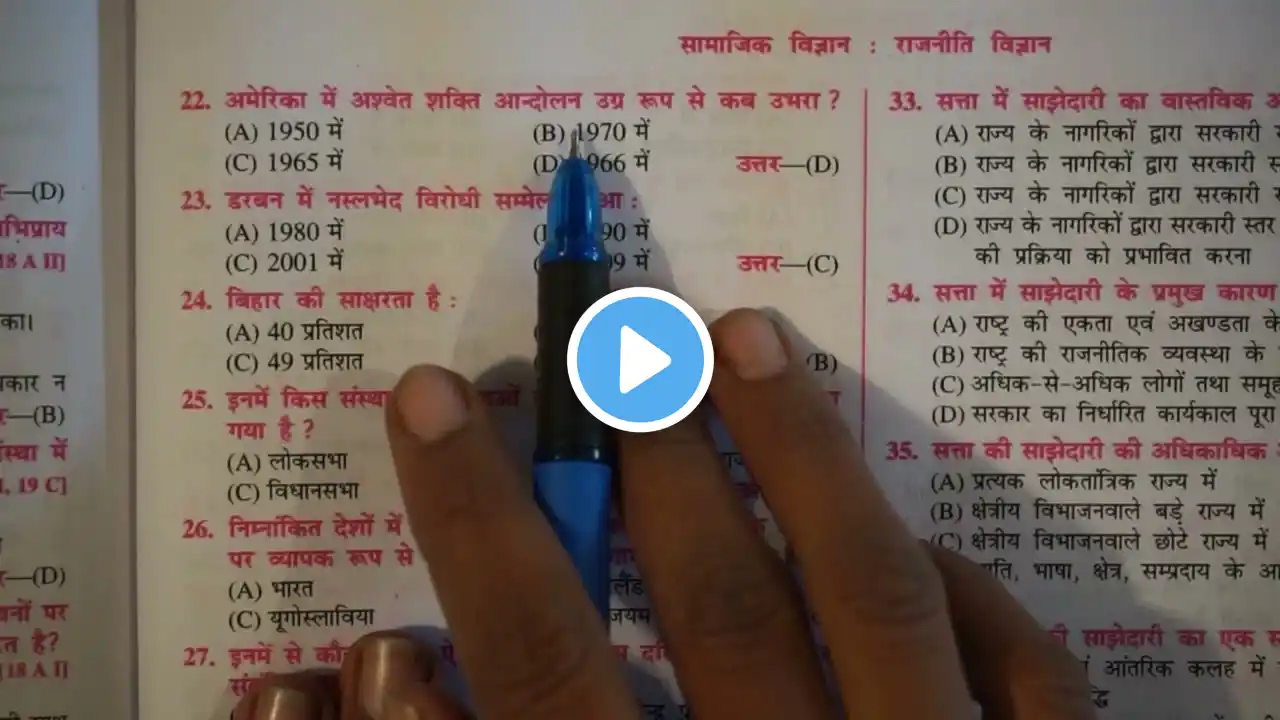 सामाजिक विज्ञान : राजनीति विज्ञान
—(D)
भिप्राय
18 A II]
का।
कार न
—(B)
स्था में
, 19 C]
—(D)
नों पर
त है?
18 A I]
22. अमेरिका में अश्वेत शक्ति आन्दोलन उग्र रूप से कब उभरा ?
(A) 1950 में (B) 1970 में
(C) 1965 में (D) 1966 में उत्तर—(D)
23. डरबन में नस्लभेद विरोधी सम्मेल आ :
(A) 1980 में 90 में
(C) 2001 में 99 में उत्तर—(C)
24. बिहार की साक्षरता है :
(A) 40 प्रतिशत
(C) 49 प्रतिशत (B)
25. इनमें किस संस्था
गया है ?
(A) लोकसभा
(C) विधानसभा
26. निम्नांकित देशों में
पर व्यापक रूप से
(A) भारत
(C) यूगोस्लाविया जियम
27. इनमें से कौ
33. सत्ता में साझेदारी का वास्तविक
(A) राज्य के नागरिकों द्वारा सरकारी
(B) राज्य के नागरिकों द्वारा सरकारी
(C) राज्य के नागरिकों द्वारा सरकारी
(D) राज्य के नागरिकों द्वारा सरकारी स्तर
की प्रक्रिया को प्रभावित करना
34. सत्ता में साझेदारी के प्रमुख कारण
(A) राष्ट्र की एकता एवं अखण्डता के
(B) राष्ट्र की राजनीतिक व्यवस्था के
(C) अधिक-से-अधिक लोगों तथा समूह
(D) सरकार का निर्धारित कार्यकाल पूरा
35. सत्ता की साझेदारी की अधिकाधिक
(A) प्रत्यक लोकतांत्रिक राज्य में
(B) क्षेत्रीय विभाजनवाले बड़े राज्य में
(C) क्षेत्रीय विभाजनवाले छोटे राज्य में
ति, भाषा, क्षेत्र, सम्प्रदाय के आ
की साझेदारी का एक
आंतरिक कलह में